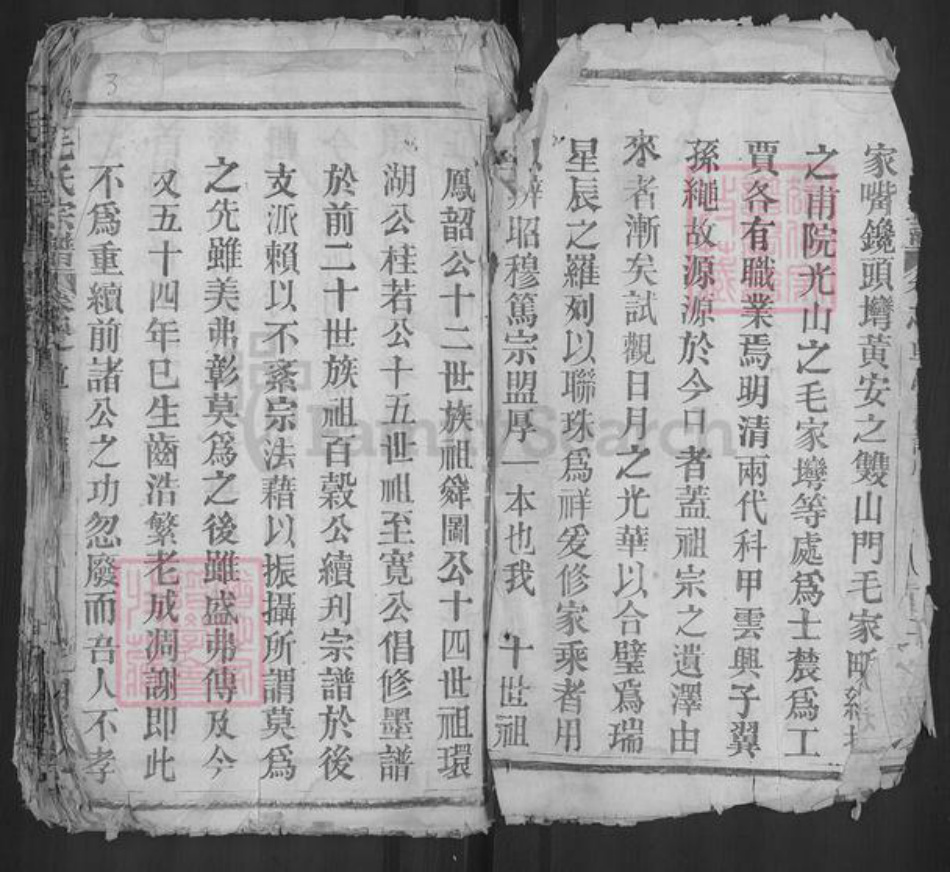 家嘴鑱頭壪黃安之雙山門毛家畈
之甫院光山之毛家壪等處爲士農爲工
賈各有職業焉明清兩代科甲雲興子翼
孫繩故源源於今日者蓋祖宗之遺澤由
來者漸矣試觀日月之光華以合璧爲瑞
星辰之羅列以聯珠爲祥爰修家乘者用
辨昭穆篤宗盟厚一本也我 十世祖
鳳韶公十二世族祖舜圖公十四世祖環
湖公桂若公十五世祖至寬公倡修墨譜
於前二十世族祖百穀公續刋宗譜於後
支派賴以不紊宗法藉以振攝所謂莫爲
之先雖美弗彰莫爲之後雖盛弗傳及今
又五十四年已生齒浩繁老成凋謝即此
不爲重續前諸公之功忽廢而吾人不孝
毛氏宗譜
3
FamilySearch